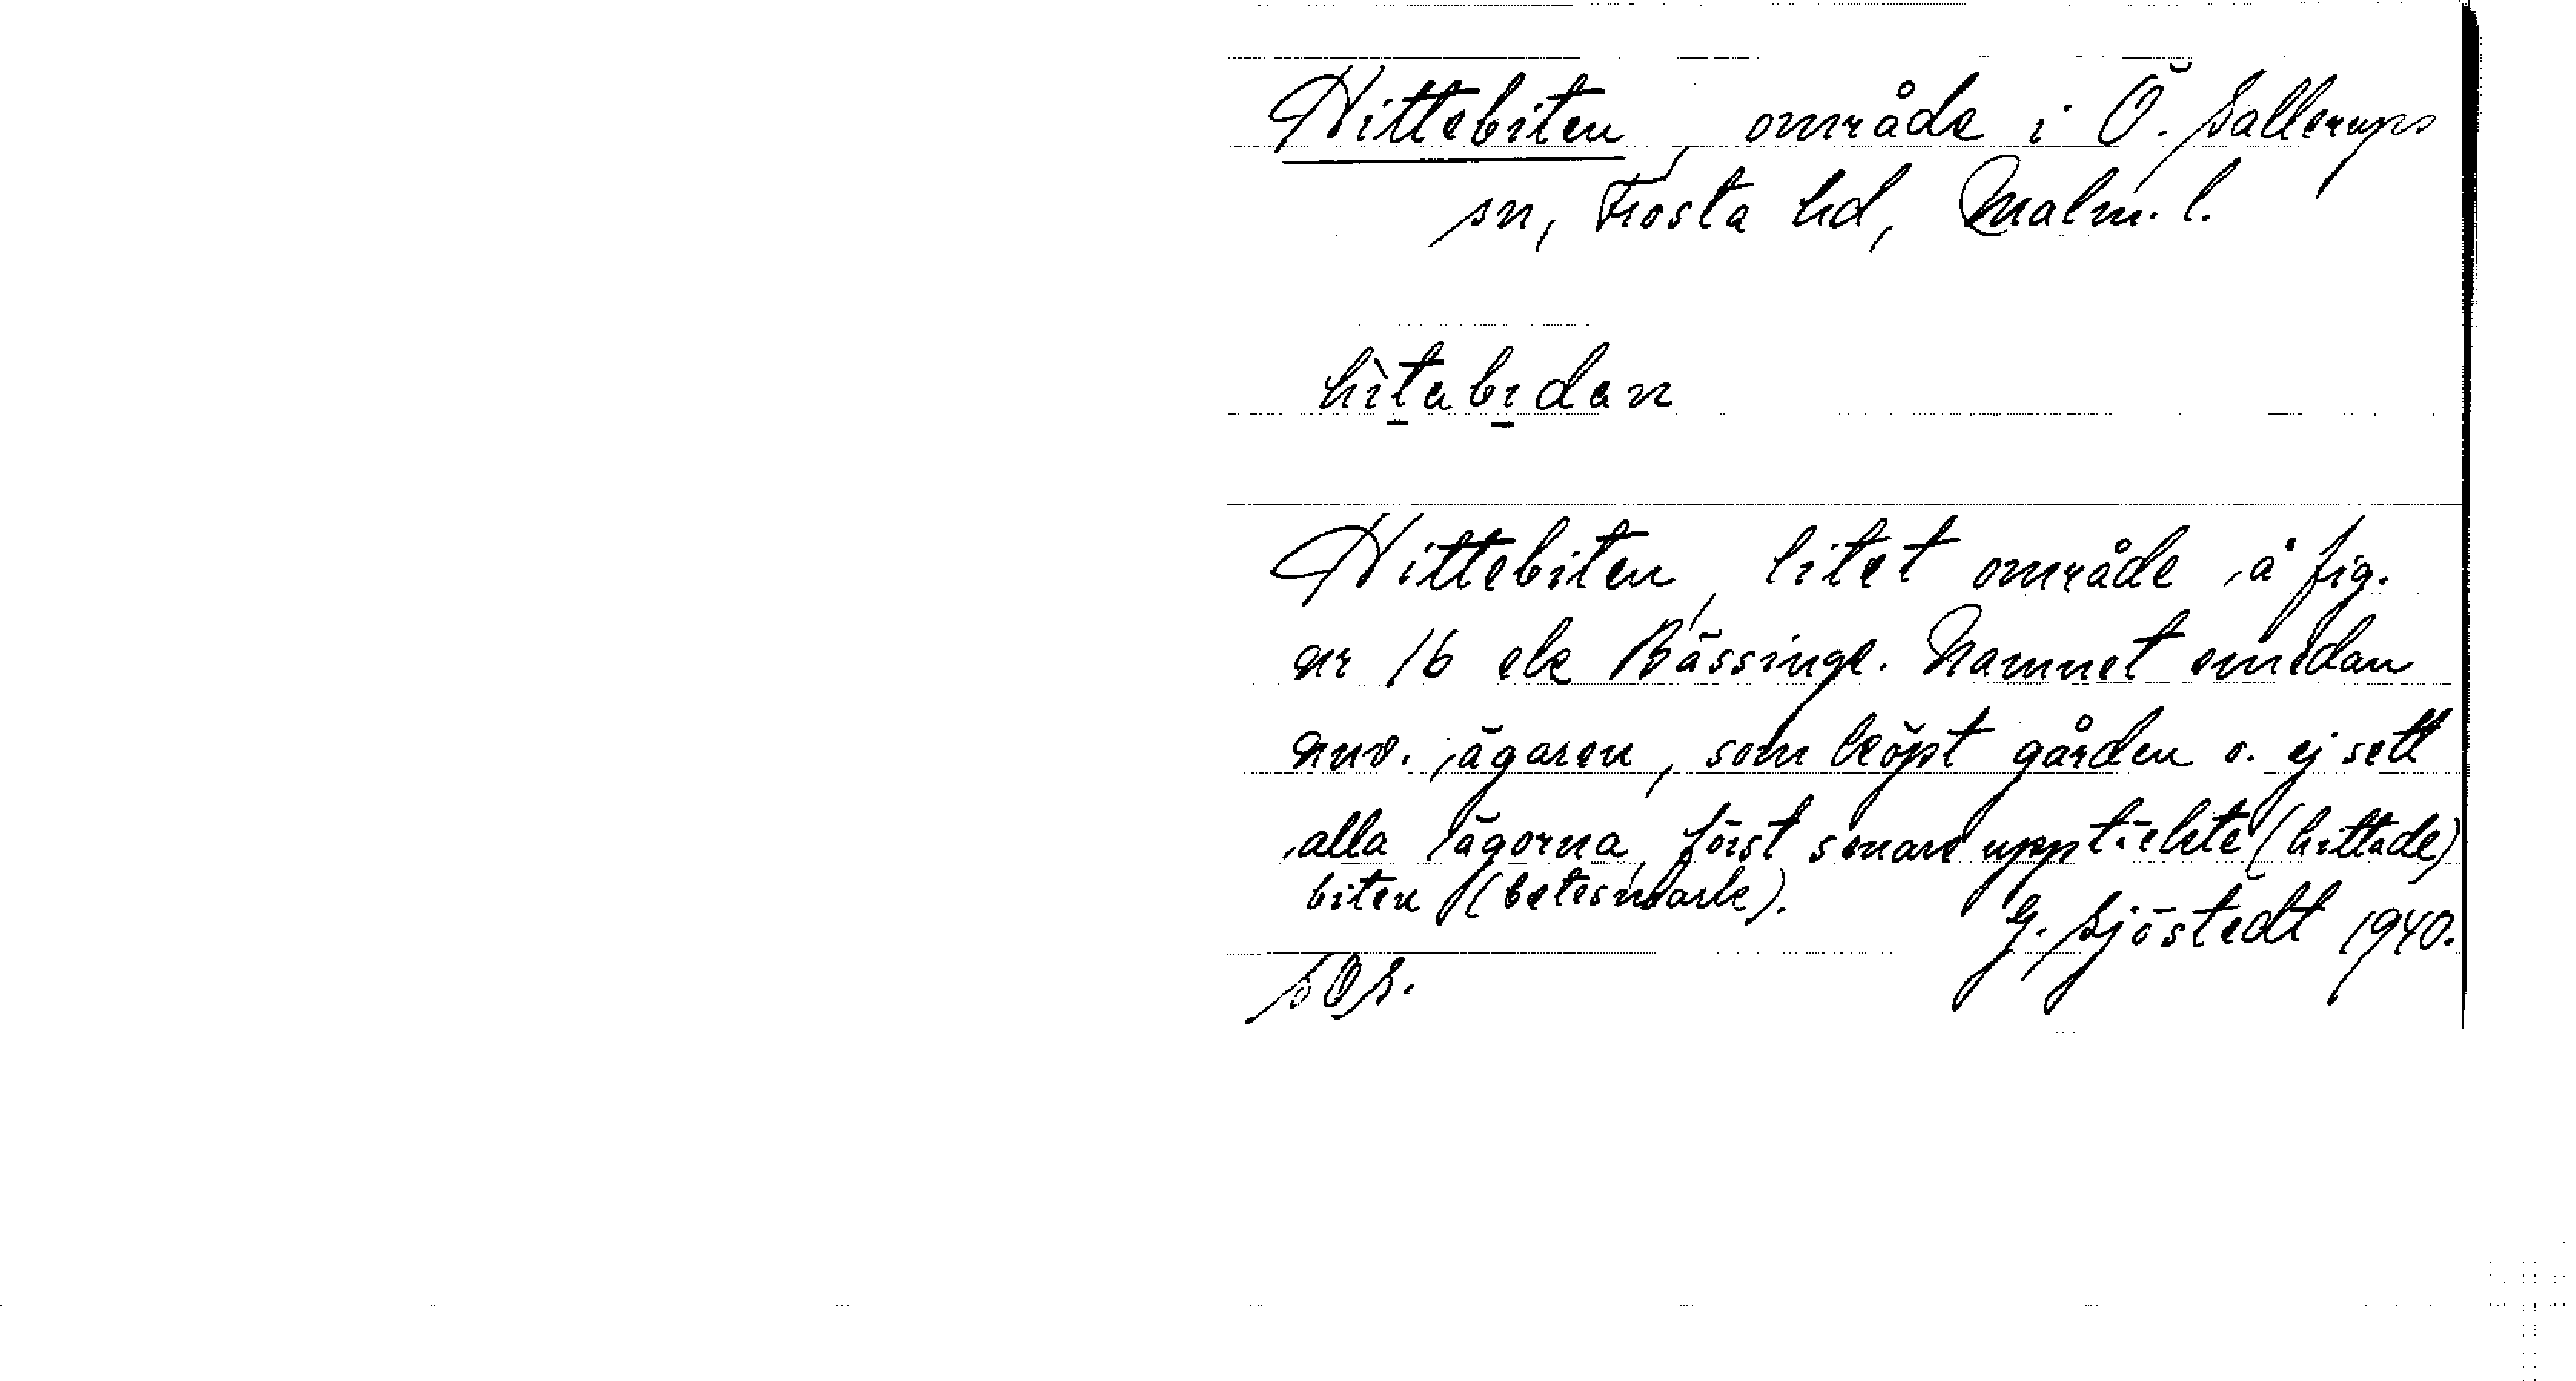 Hittebiten, område i Ö. Sallerups
sn, Frosta hd, Malm. l.
hìtabidan
Hittebiten, litet område å fig.
nr 16 ek Bässinge. Namnet emedan
nuv. ägaren, som köpt gården o. ej sett
alla ägorna, först senare upptäckte (hittade)
biten (betesmark).
G. Sjöstedt 1940.
SOS.